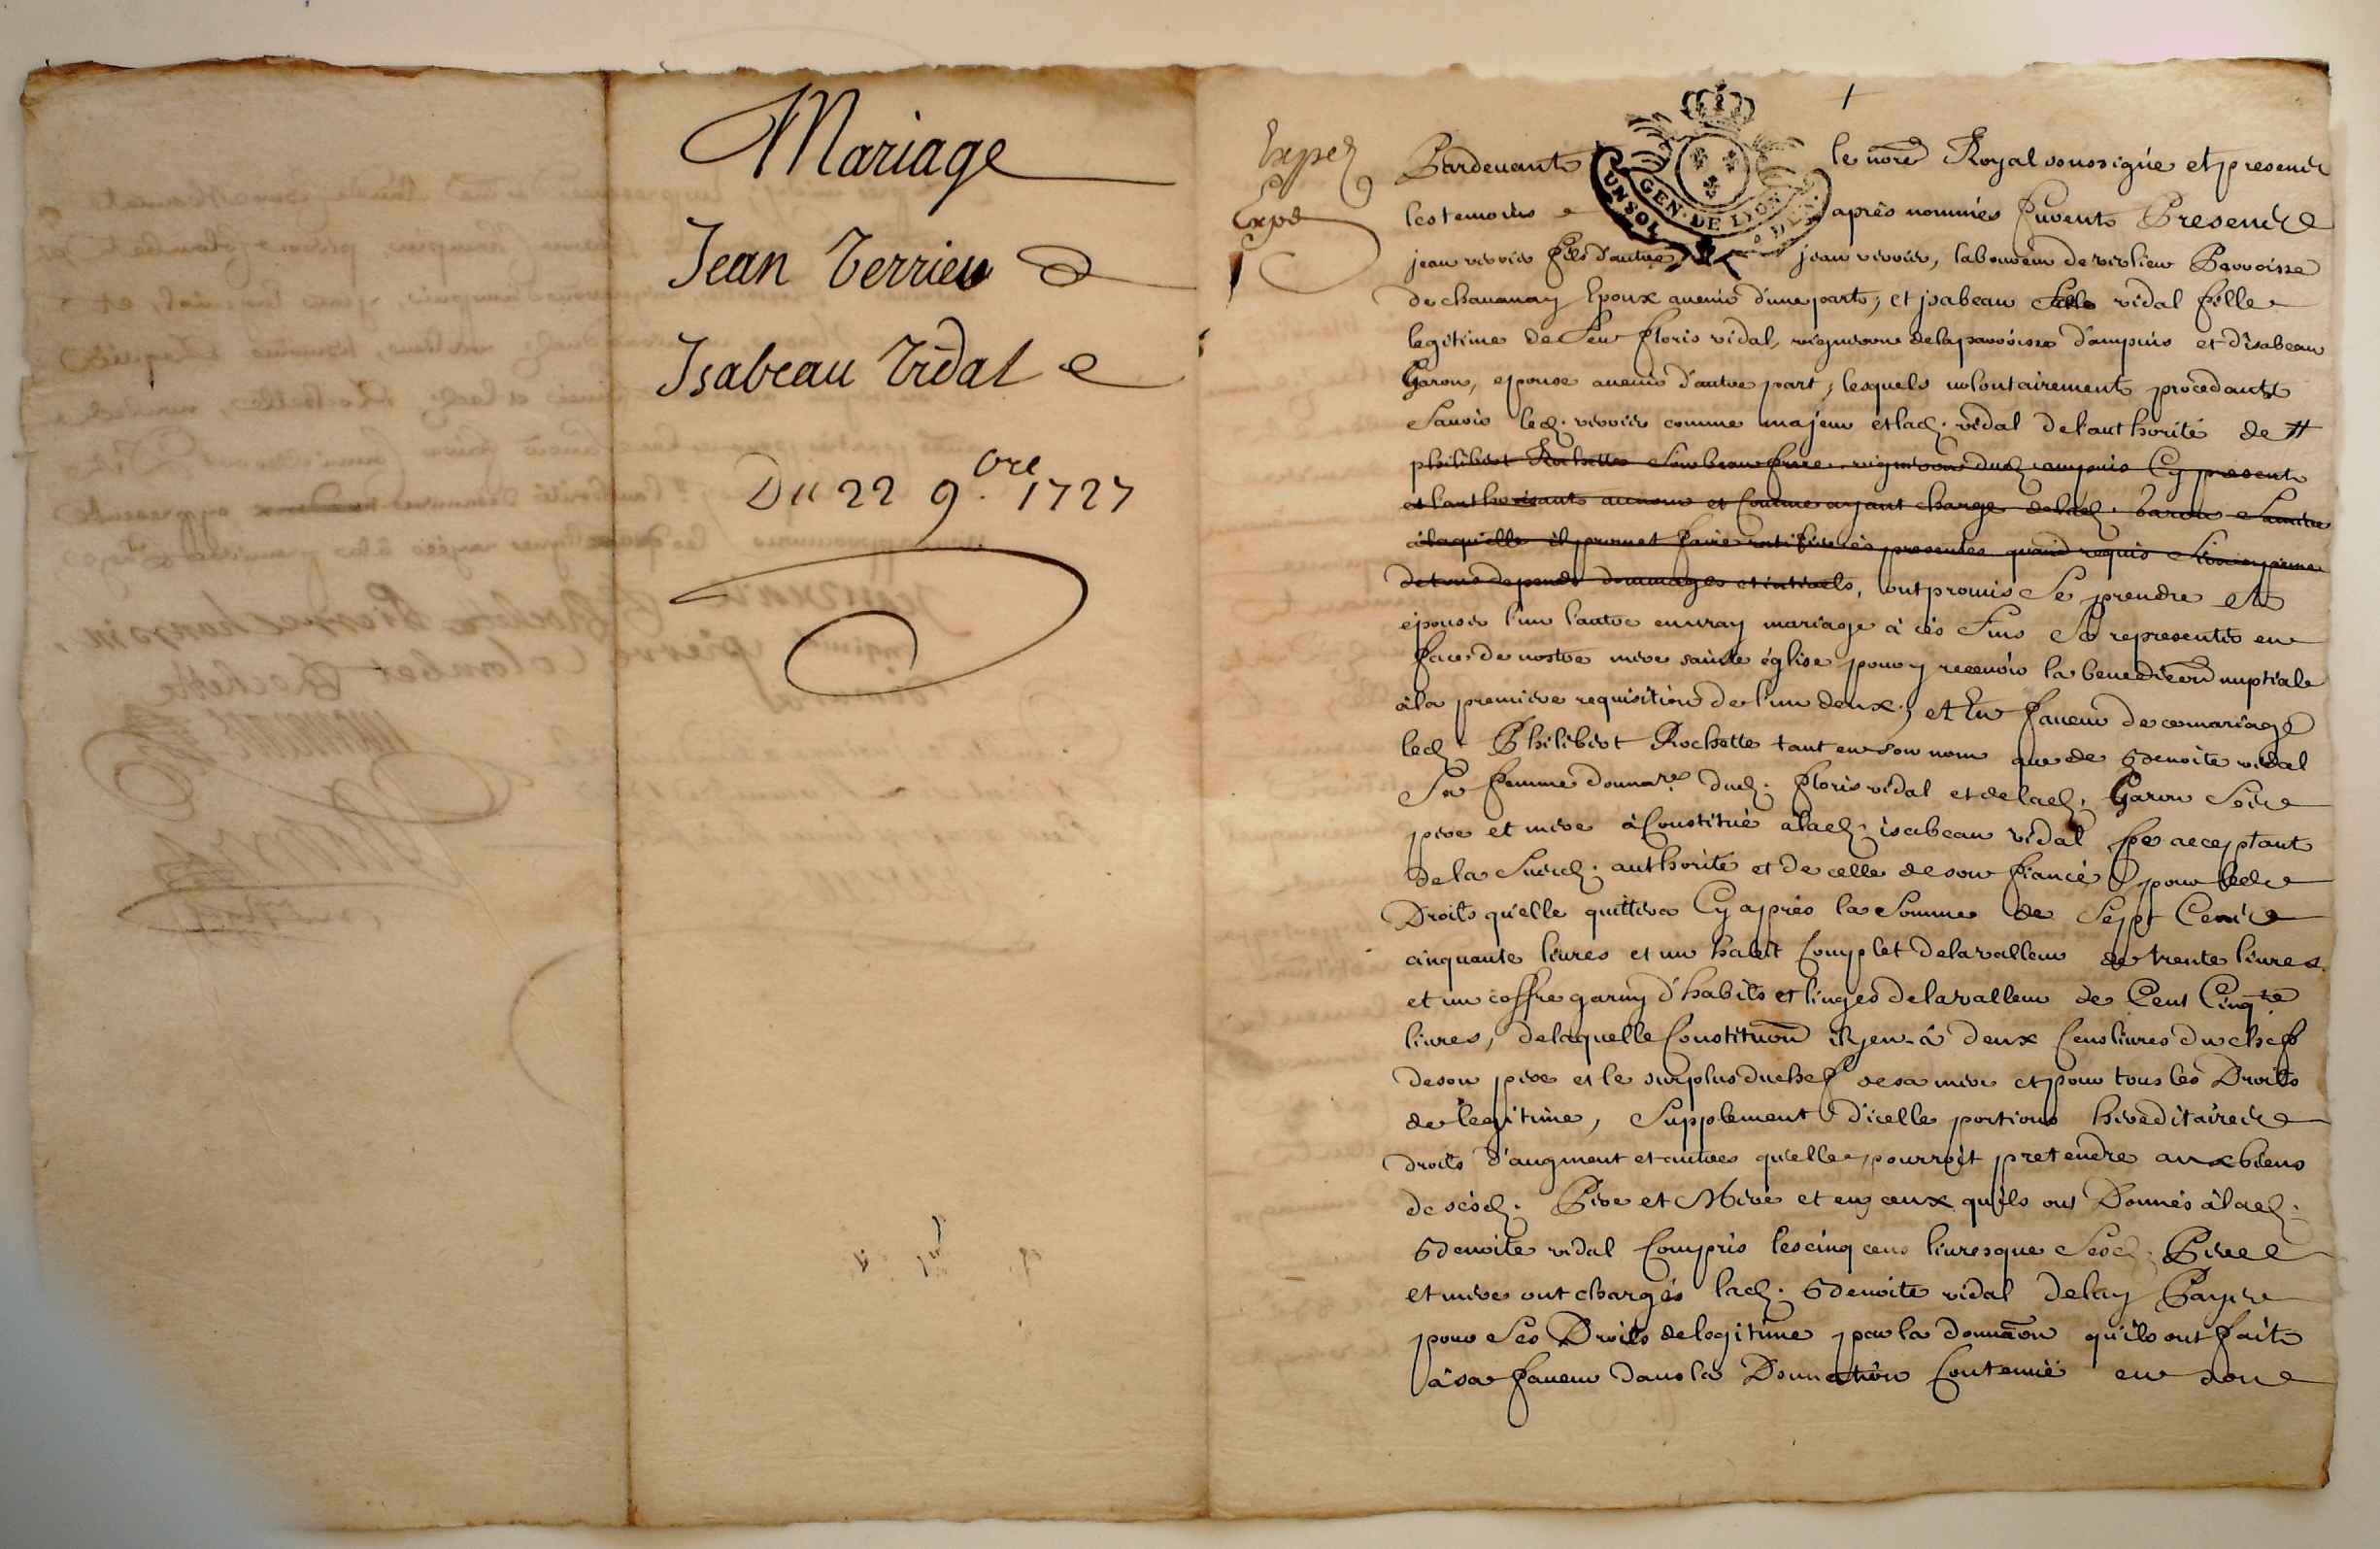 Mariage
Jean Verrier
Isabeau Vidal
Du 22 9.bre 1727
Exped
Expd
1
GEN. DE LYON
UN SOL
Pardevant le nore Royal soussigné et presents
les temoins apres nommés furent Presents
jean verrier fils d'autre jean verrier, laboureur de verlieu Parroisse
de chavanay Epoux avenir d'une part, et jsabeau vidal fille
legitime de feu floris vidal, vigneron de la parroisse d'ampuis et d'isabeau
Garon, epouse avenir d'autre part, lesquels volontairement procedants
Savoir led. verrier comme majeur et lad. vidal de l'authorité de #
philibert Rochette son beau frere vigneron dud. ampuis Cy present
et l'authorisant au nom et Comme ayant charge de lad. Garon sa mere
a laquelle il promet faire ratifier les presentes quand requis sera a peine
de tous depends dommages et interets, ont promis se prendre et
epouser l'un l'autre en vray mariage à ces fins se representer en
face de nostre mere sainte église pour y recevoir la benediction nuptiale
à la premiere requisition de l'un deux, et En faveur de ce mariage
led. Philibert Rochette tant en son nom que de Benoite vidal
sa femme donnare. dud. floris vidal et de lad. Garon ses
pere et mere à Constitué à lad. isabeau vidal fe acceptant
de la susd. authorité et de celle de son fiancé pour les
Droits qu'elle quittera Cy après la somme de Sept Cents
cinquante livres et un habit Complet de la valleur de trente livres
et un coffre garny d'habits et linges de la valleur de Cent Cinqte
livres, de laquelle Constitution il y en à deux Cens livres du chef
de son pere et le surplus du chef de sa mere et pour tous les Droits
de legitime, Supplement d'icelle portions hereditaires
droits d'augment et autres qu'elle pourroit pretendre aux biens
de sesd. Pere et Mere et en ceux qu'ils ont Donnés à lad.
Benoite vidal Compris les cinq cens livres que sesd. Pere
et mere ont chargés lad. Benoite vidal de luy Payer
pour ses Droits de legitime par la donnation qu'ils ont fait
à sa faveur dans la Donnation Contenüe en son